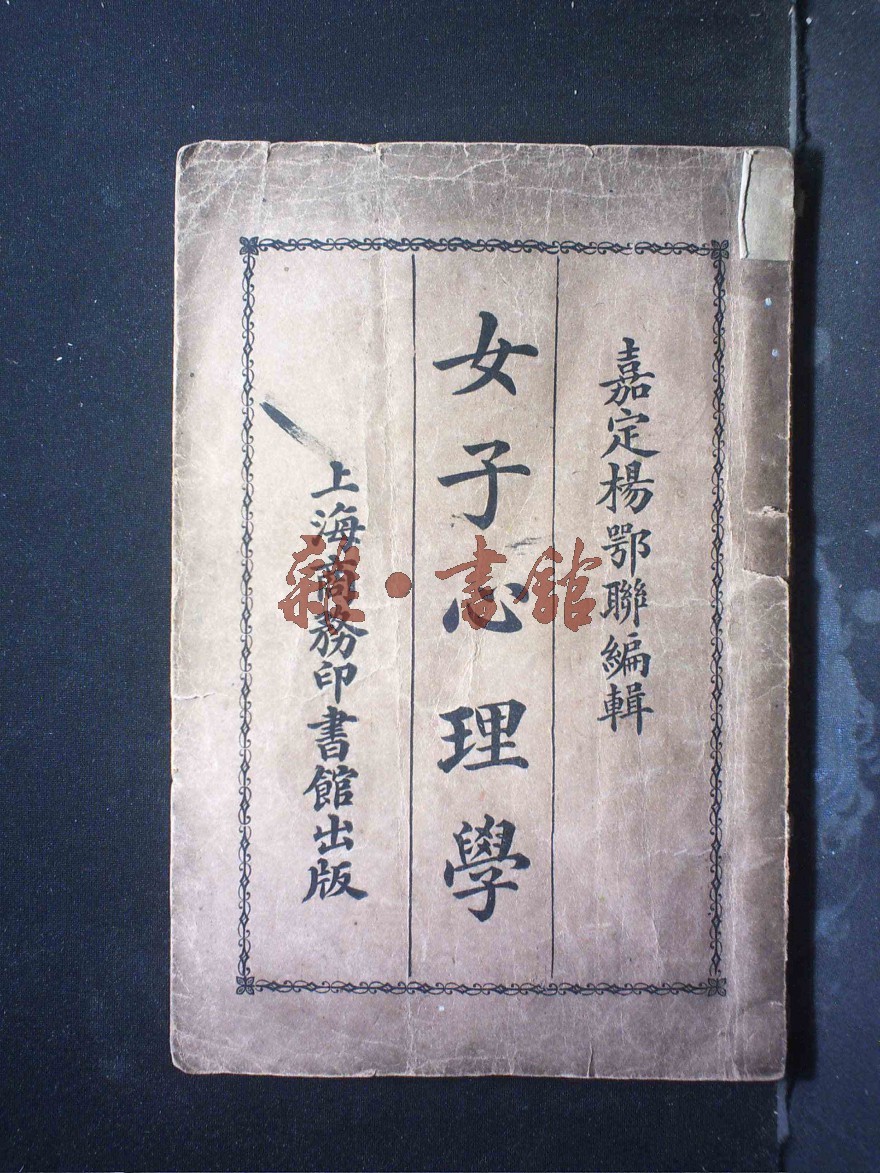 嘉定楊鄂聯編輯
女子心理學
上海商務印書館出版
雜·書館